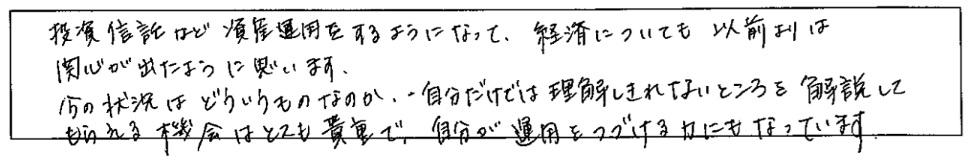 投資信託など資産運用をするようになって、経済についても以前よりは
関心が出たように思います。
今の状況はどういうものなのか、自分だけでは理解しきれないところを解説して
もらえる機会はとても貴重で、自分が運用をつづける力にもなっています。